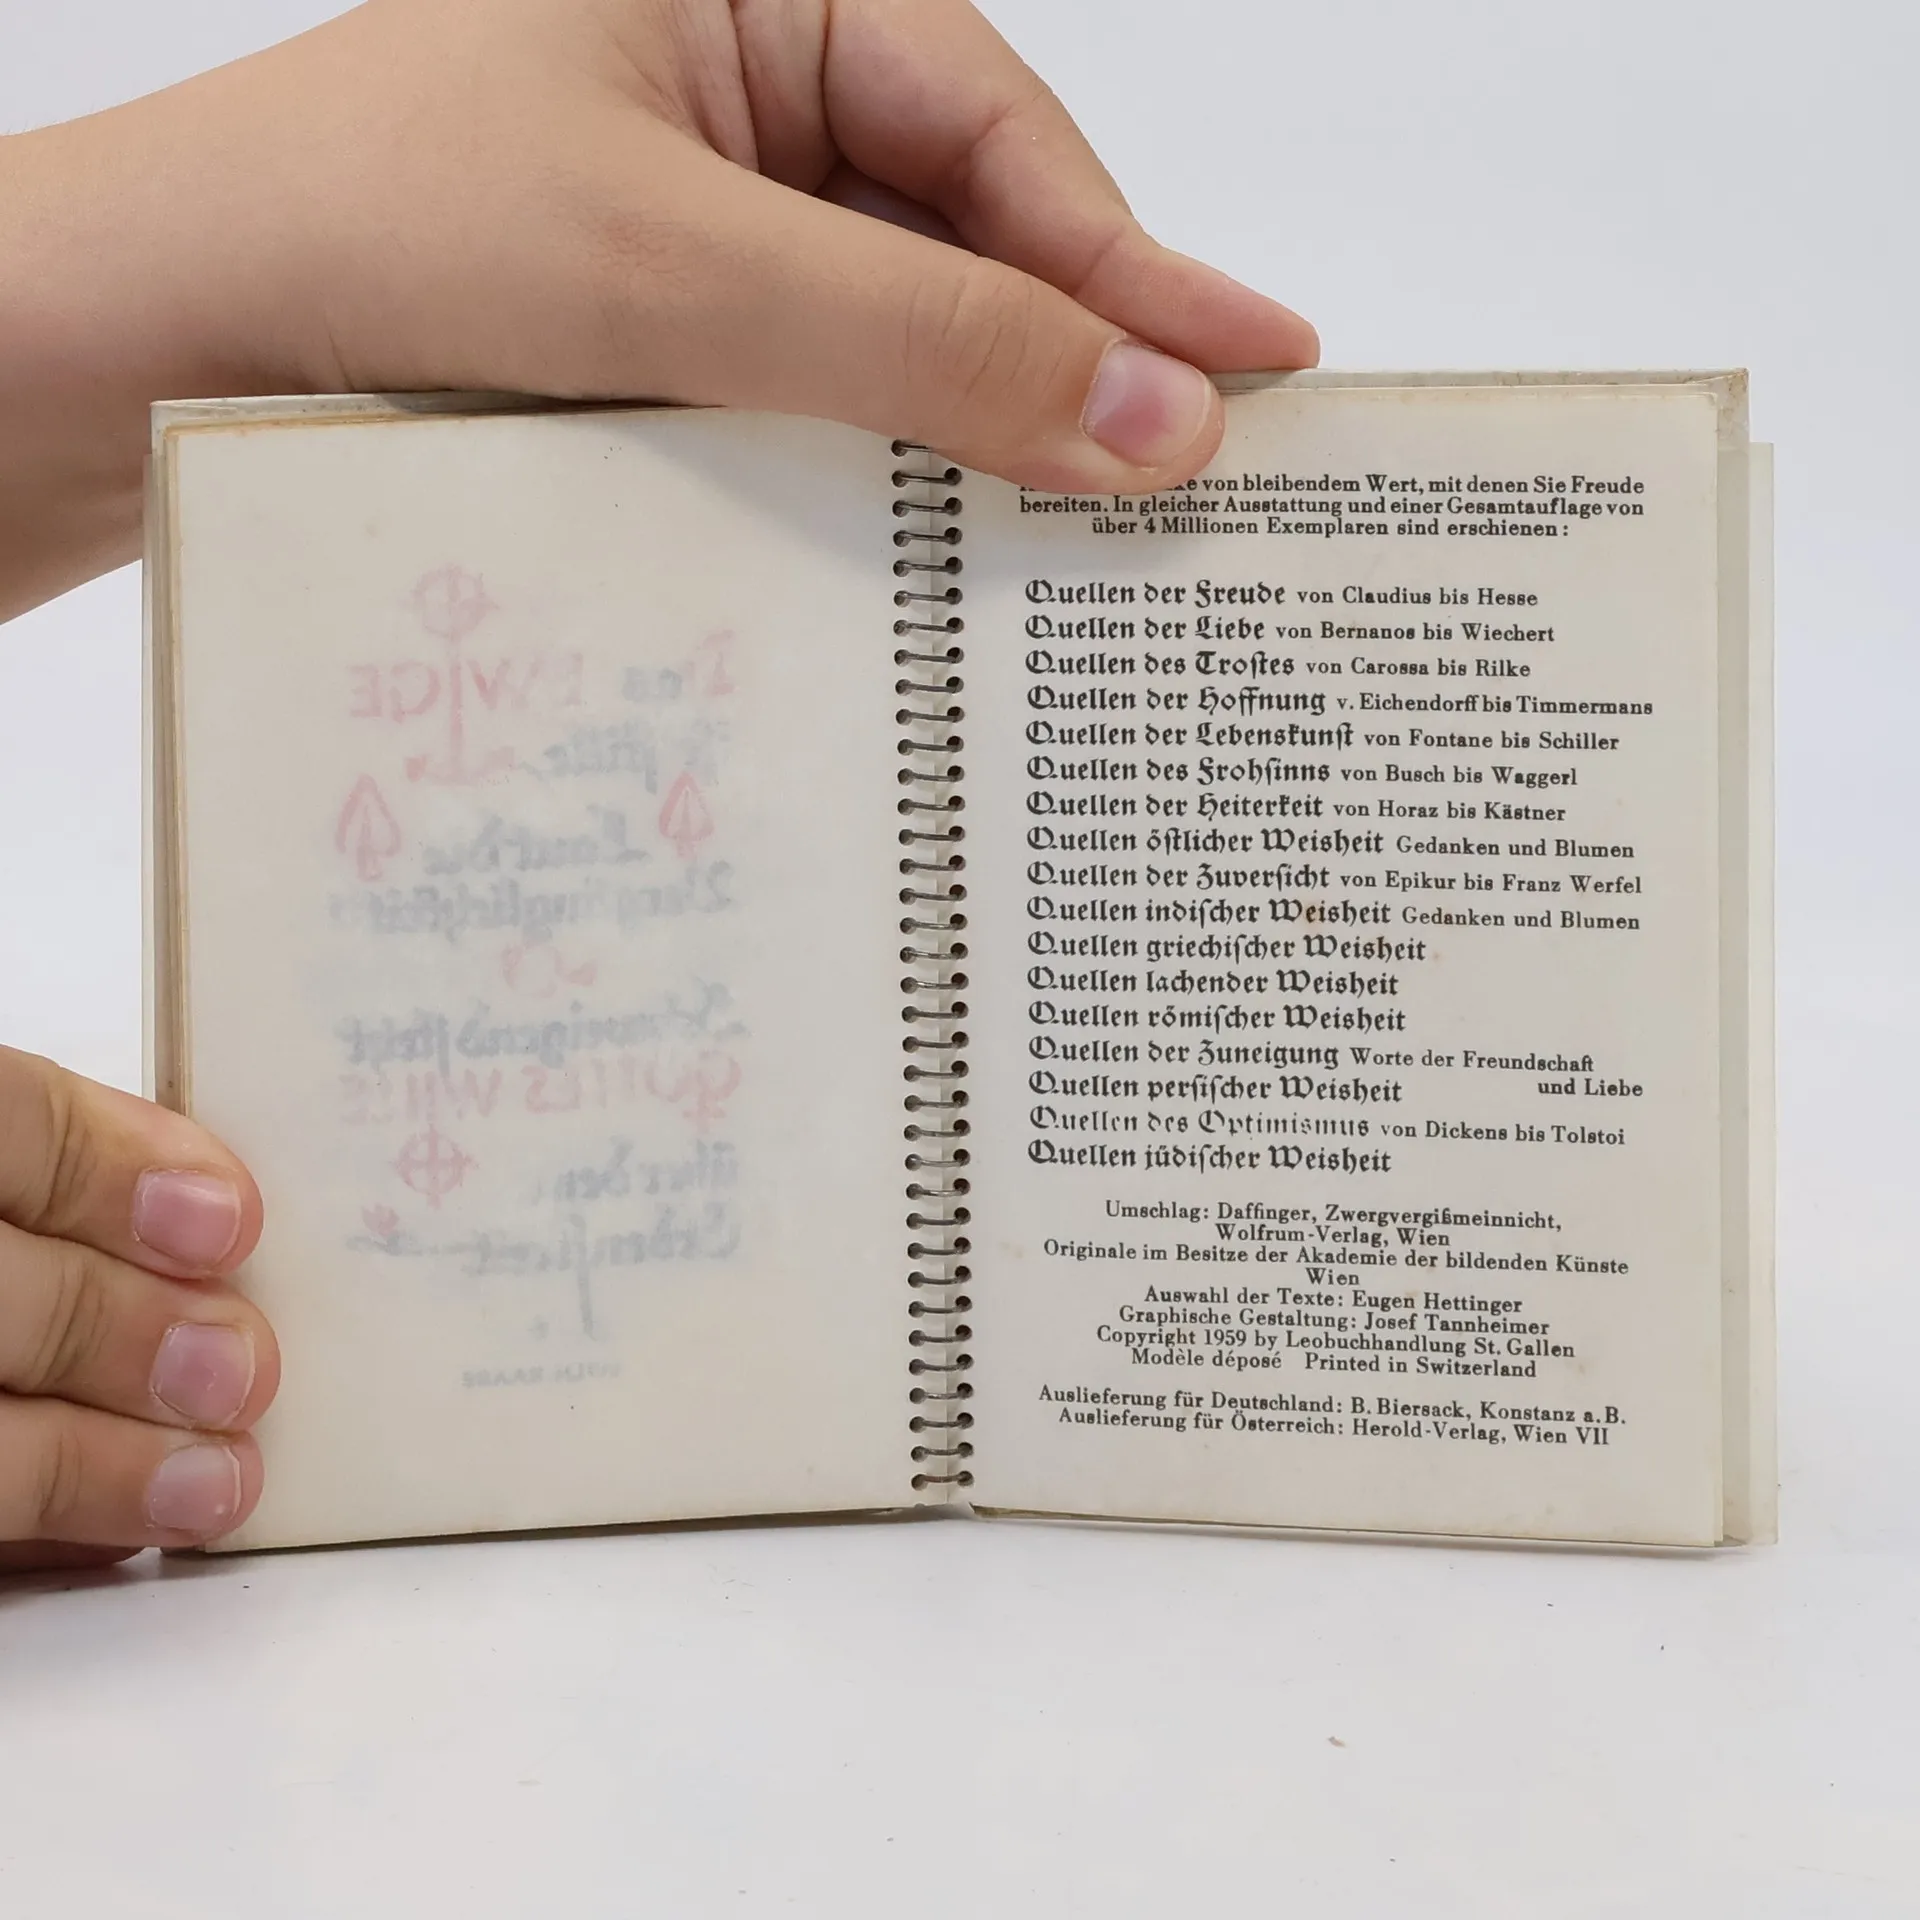 Das EWIGE
ist stille,
Laut die
Vergänglichkeit
Schweigend steht
GOTTES WILLE
über den
Erdenstreit
RAABE
von bleibendem Wert, mit denen Sie Freude
bereiten. In gleicher Ausstattung und einer Gesamtauflage von
über 4 Millionen Exemplaren sind erschienen:
Quellen der Freude von Claudius bis Hesse
Quellen der Liebe von Bernanos bis Wiechert
Quellen des Trostes von Carossa bis Rilke
Quellen der Hoffnung v. Eichendorff bis Timmermans
Quellen der Lebenskunst von Fontane bis Schiller
Quellen des Frohsinns von Busch bis Waggerl
Quellen der Heiterkeit von Horaz bis Kästner
Quellen östlicher Weisheit Gedanken und Blumen
Quellen der Zuversicht von Epikur bis Franz Werfel
Quellen indischer Weisheit Gedanken und Blumen
Quellen griechischer Weisheit
Quellen lachender Weisheit
Quellen römischer Weisheit
Quellen der Zuneigung Worte der Freundschaft
Quellen persischer Weisheit und Liebe
Quellen des Optimismus von Dickens bis Tolstoi
Quellen jüdischer Weisheit
Umschlag: Daffinger, Zwergvergißmeinnicht,
Wolfrum-Verlag, Wien
Originale im Besitze der Akademie der bildenden Künste
Wien
Auswahl der Texte: Eugen Hettinger
Graphische Gestaltung: Josef Tannheimer
Copyright 1959 by Leobuchhandlung St. Gallen
Modèle déposé Printed in Switzerland
Auslieferung für Deutschland: B. Biersack, Konstanz a. B.
Auslieferung für Österreich: Herold-Verlag, Wien VII